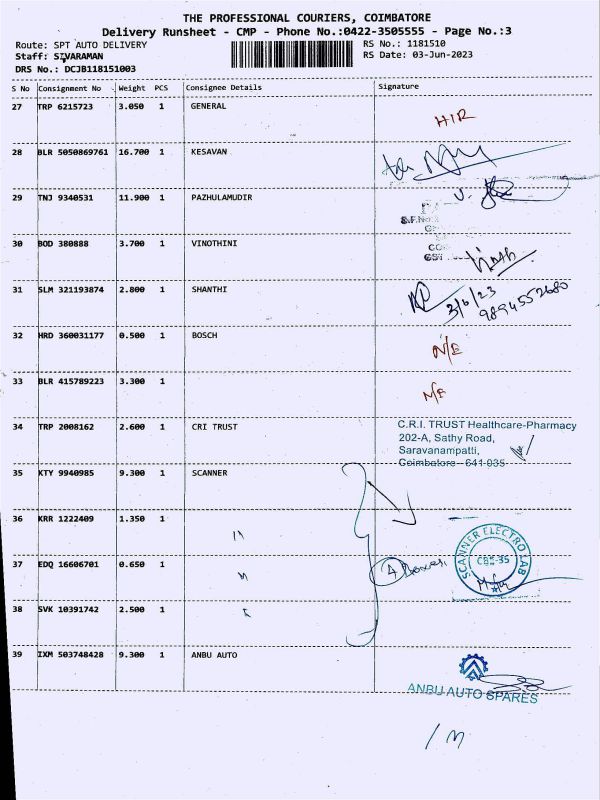 THE PROFESSIONAL COURIERS, COIMBATORE
Delivery Runsheet - CMP - Phone No.:0422-3505555 - Page No.:3
Route: SPT AUTO DELIVERY RS No.: 1181510
Staff: SIVARAMAN RS Date: 03-Jun-2023
DRS No.: DCJB118151003
S No Consignment No Weight PCS Consignee Details Signature
27 TRP 6215723 3.050 1 GENERAL
28 BLR 5050869761 16.700 1 KESAVAN
29 TNJ 9340531 11.900 1 PAZHULAMUDIR
S.F.No
30 BOD 380888 3.700 1 VINOTHINI
31 SLM 321193874 2.800 1 SHANTHI 3/6/23
9894552680
32 HRD 360031177 0.500 1 BOSCH N/E
33 BLR 415789223 3.300 1 N/E
34 TRP 2008162 2.600 1 CRI TRUST C.R.I. TRUST Healthcare-Pharmacy
202-A, Sathy Road,
Saravanampatti,
Coimbatore - 641 035
35 KTY 9940985 9.300 1 SCANNER
36 KRR 1222409 1.350 1
37 EDQ 16606701 0.650 1 4 Boxes SCANNER ELECTRO LAB
CBE-35
38 SVK 10391742 2.500 1
39 IXM 503748428 9.300 1 ANBU AUTO
ANBU AUTO SPARES